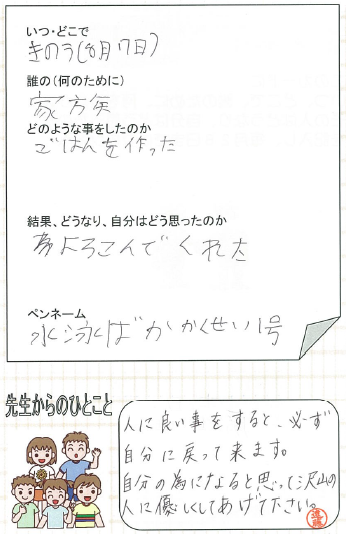 いつ・どこで
きのう(8月17日)
誰の(何のために)
家方矢
どのような事をしたのか
ごはんを作った
結果、どうなり、自分はどう思ったのか
よろこんでくれた
ペンネーム
水泳ばかかくせい1号
先生からのひとこと
人に良い事をすると、必ず
自分に戻って来ます。
自分の為になると思って沢山の
人に優しくしてあげて下さい。
遠藤